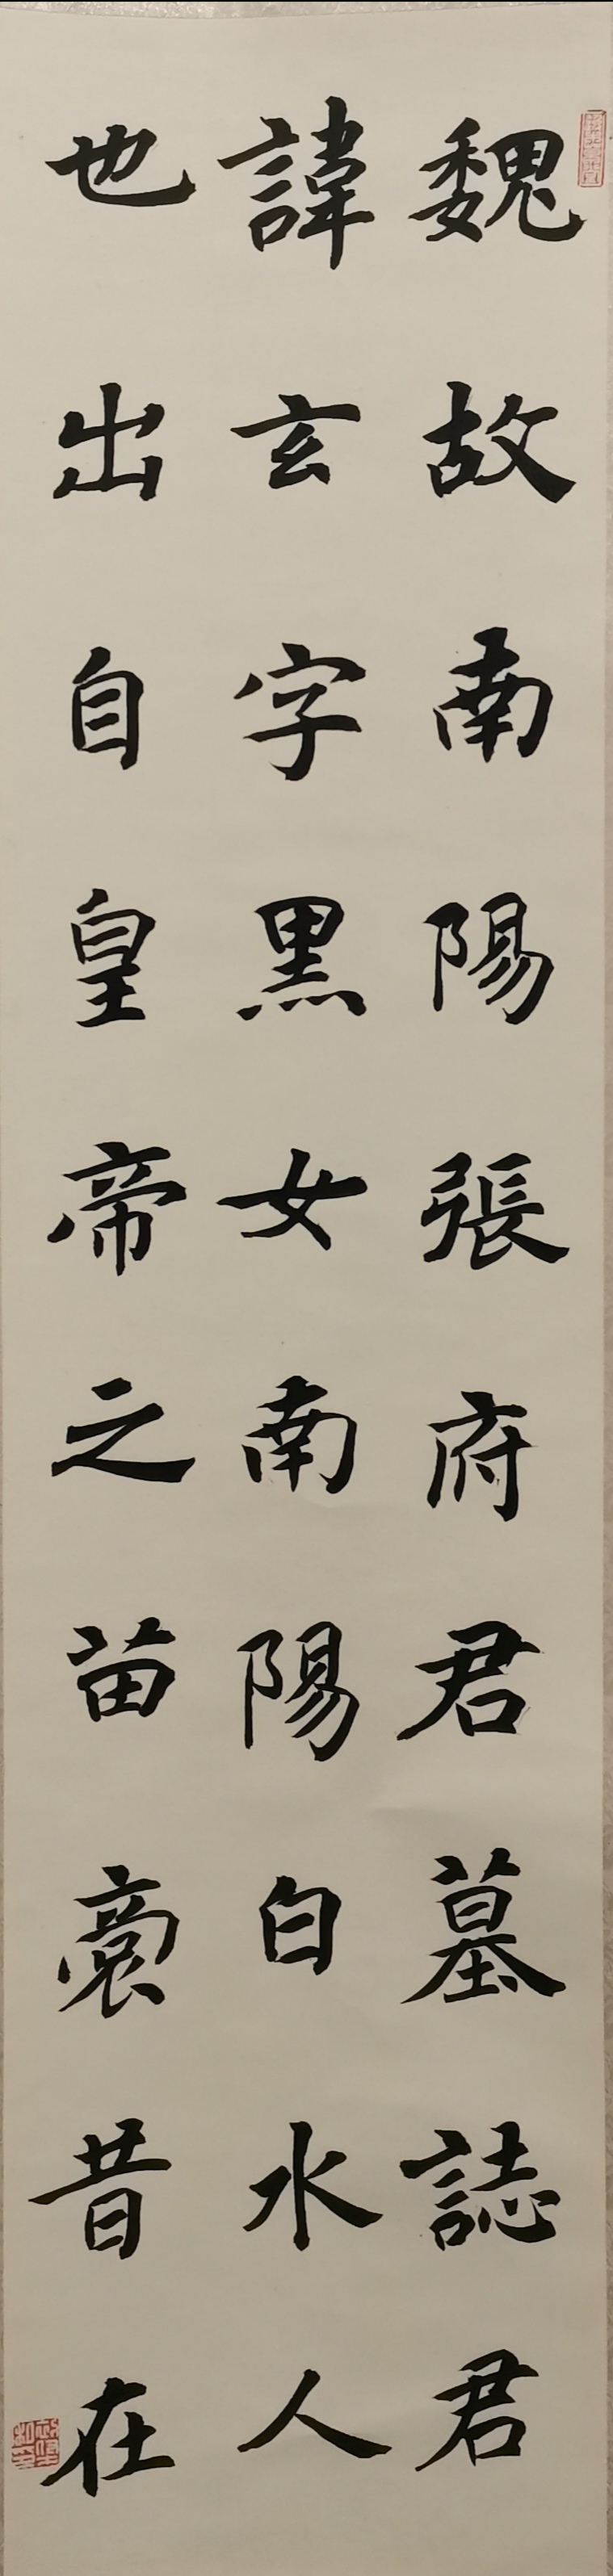 魏故南陽張府君墓誌君
諱玄字黑女南陽白水人
也出自皇帝之苗裔昔在